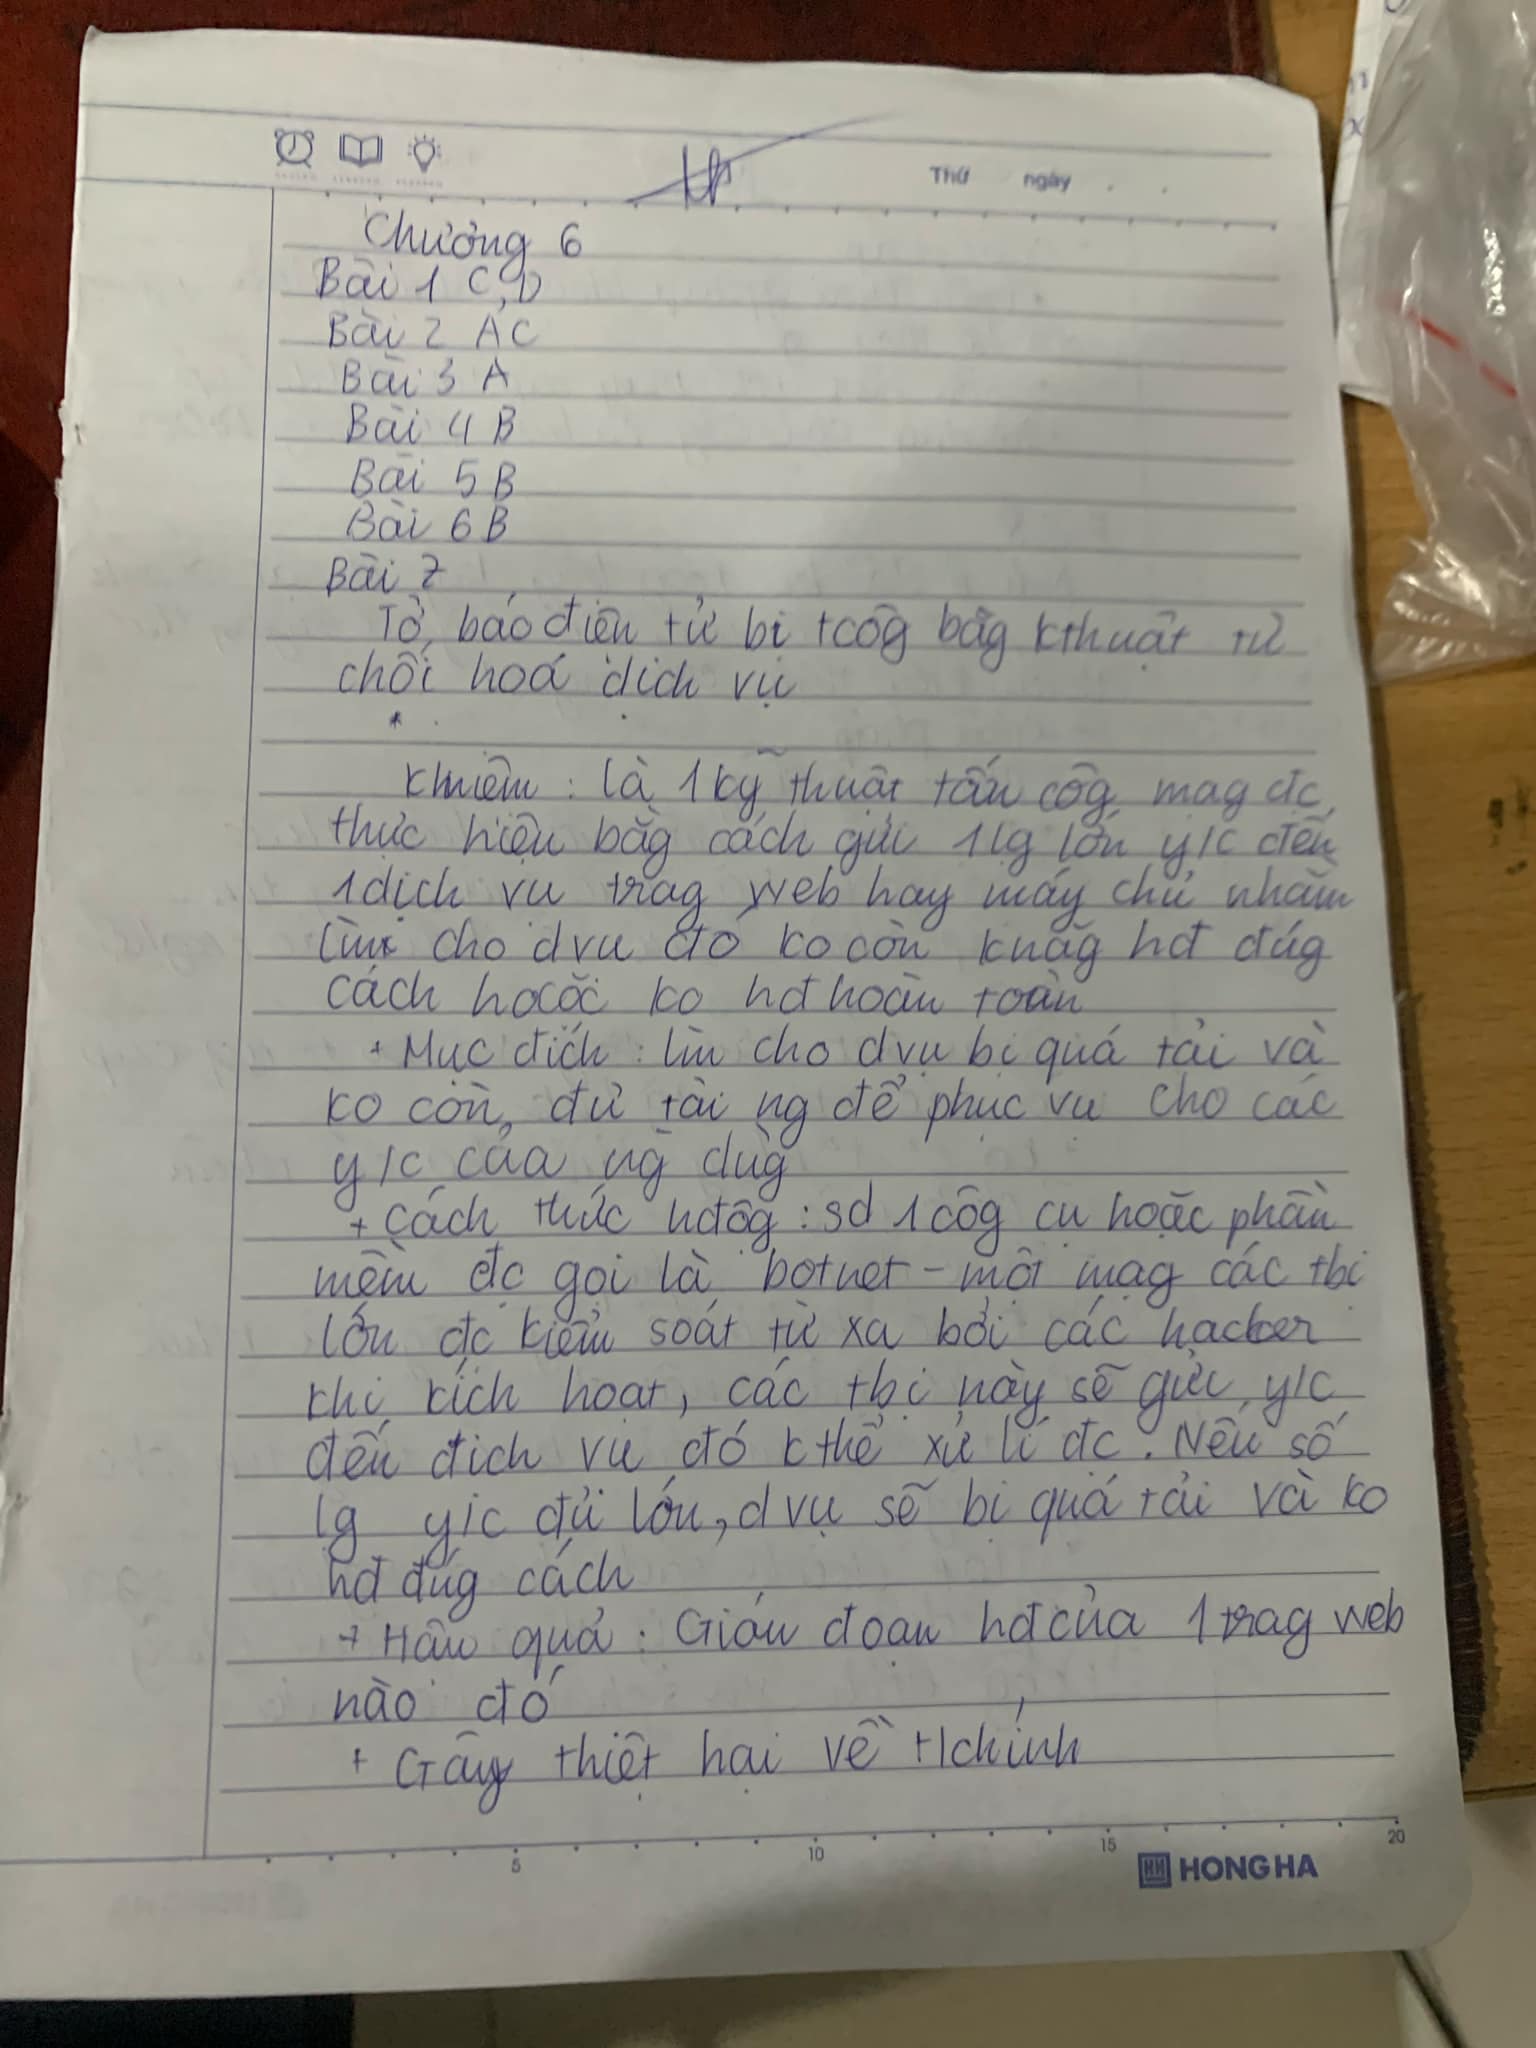 Thứ ngày
Chương 6
Bài 1 C, D
Bài 2 A C
Bài 3 A
Bài 4 B
Bài 5 B
Bài 6 B
Bài 7
Tờ báo điện tử bị tcôg bằg kthuật từ
chối hoá dịch vụ
Kniệm : là 1 kỹ thuật tấn côg mạg đc
thực hiện bằg cách gửi 1 lg lớn y/c đến
1 dịch vụ trag web hay máy chủ nhằm
làm cho dvụ đó ko còn knăg hđ đúg
cách hoặc ko hđ hoàn toàn
+ Mục đích : làm cho dvụ bị quá tải và
ko còn đủ tài ng để phục vụ cho các
y/c của ng dùg
+ Cách thức hđộg : sd 1 côg cụ hoặc phần
mềm đc gọi là botnet - một mạg các tbị
lớn đc kiểm soát từ xa bởi các hacker
khi kích hoạt, các tbị này sẽ gửi y/c
đến địch vụ đó k thể xử lí đc. Nếu số
lg y/c đủ lớn, dvụ sẽ bị quá tải và ko
hđ đúg cách
+ Hậu quả : Gián đoạn hđ của 1 trag web
nào đó
+ Gây thiệt hại về t/chính
5 10 15 20
HH HONG HA